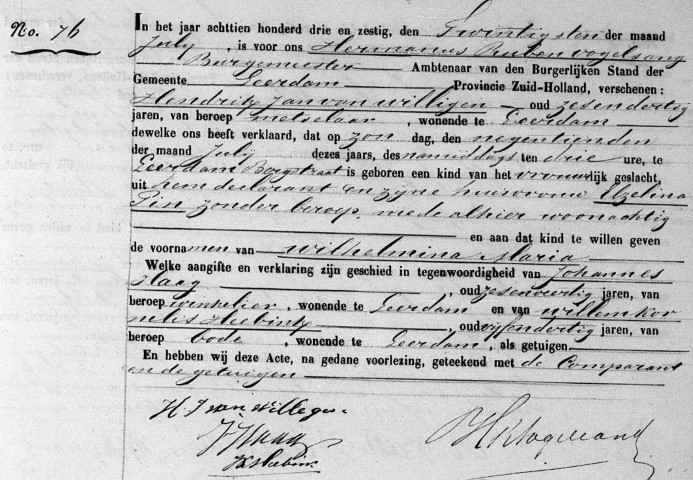 No. 76
In het jaar achttien honderd drie en zestig, den Twintigsten der maand
July, is voor ons Hermanus Ruben Vogelsang
Burgemeester Ambtenaar van den Burgerlijken Stand der
Gemeente Leerdam Provincie Zuid-Holland, verschenen:
Hendrik Jan van Willigen oud zesendertig
jaren, van beroep metselaar, wonende te Leerdam
dewelke ons heeft verklaard, dat op zon dag, den negentienden
der maand July dezes jaars, des namiddags ten drie ure, te
Leerdam Bergstraat is geboren een kind van het vrouwelijk geslacht,
uit hem declarant en zyne huisvrouw Elzelina
Pin zonder beroep, mede alhier woonachtig
en aan dat kind te willen geven
de voornamen van Wilhelmina Maria
Welke aangifte en verklaring zijn geschied in tegenwoordigheid van Johannes
Haag, oud zesenveertig jaren, van
beroep winkelier, wonende te Leerdam en van Willem Kor
nelis, oud vijfendertig jaren, van
beroep bode, wonende te Leerdam, als getuigen.
En hebben wij deze Acte, na gedane voorlezing, geteekend met de Comparant
en de getuigen
H. J. van Willegen
J Haag